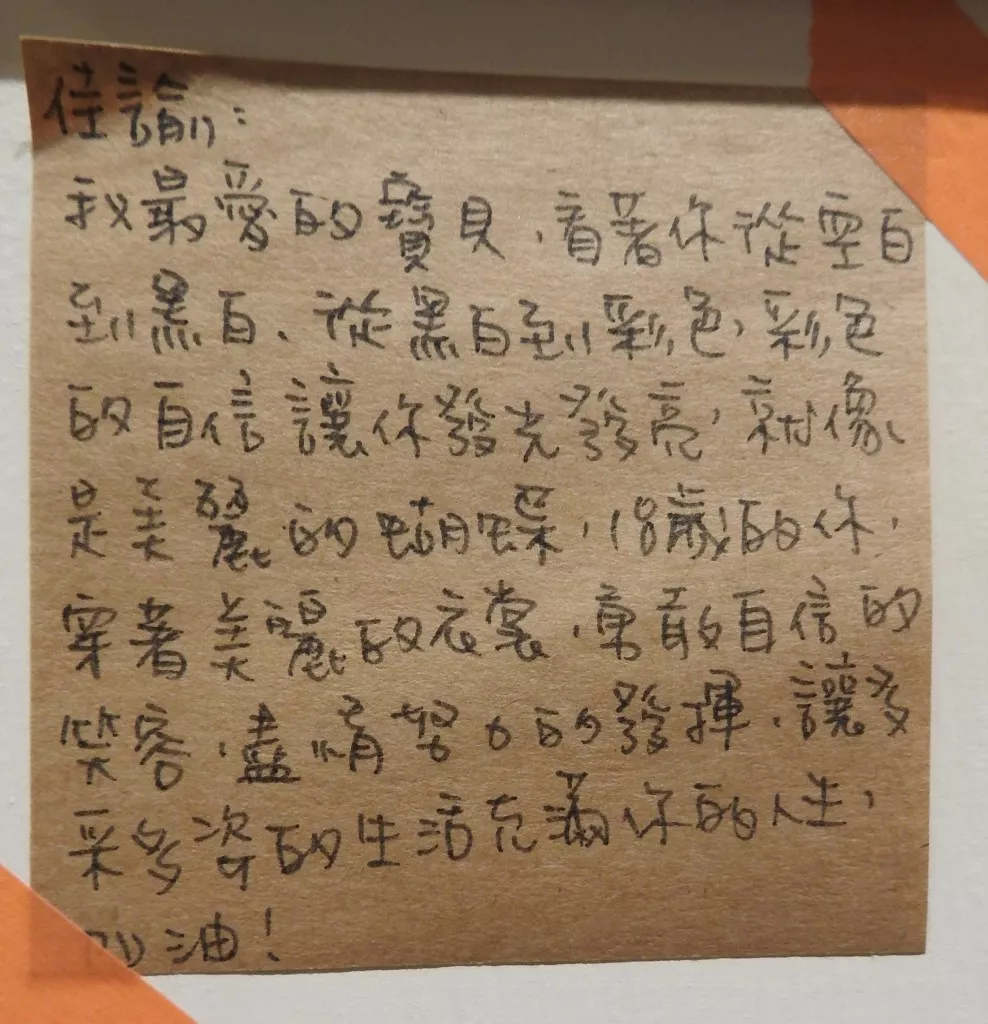 佳諭：
我最愛的寶貝，看著你從空白
到黑白、從黑白到彩色，彩色
的自信讓你發光發亮，就像
是美麗的蝴蝶，18歲的你，
穿著美麗的衣裳，勇敢自信的
笑容，盡情努力的發揮，讓多
采多姿的生活充滿你的人生，
加油！